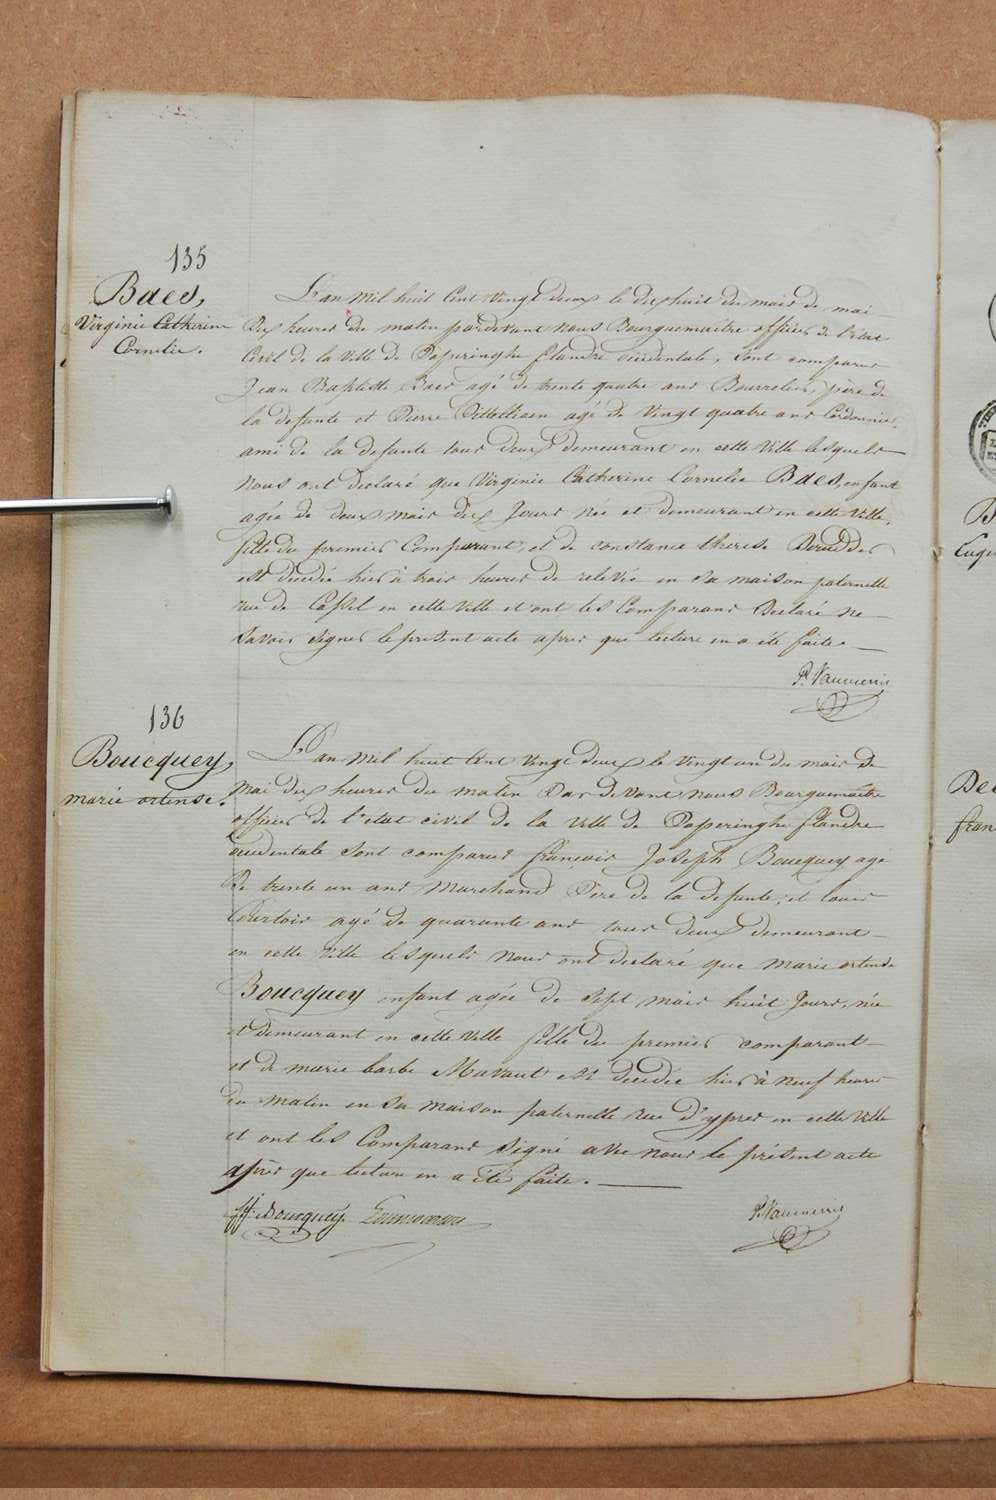 135
Baes,
Virginie Catherine
Cornelie.
L'an mil huit Cent vingt deux le dix huit du mois de mai
Dix heures du matin pardevant nous Bourguemaitre officier de l'état
Civil de la ville de Poperinghe flandre occidentale, Sont comparus
Jean Baptiste Baes agé de trente quatre ans Bourrelier, père de
la defunte et Pierre agé de vingt quatre ans Cordonnier,
ami de la defunte tous deux demeurant en cette ville lesquels
nous ont declaré que Virginie Catherine Cornelie Baes, enfant
agée de deux mois dix Jours née et demeurant en cette ville,
fille du premier Comparant, et de constance therese
est decedée hier à trois heures de relevée en sa maison paternelle
rue de Cassel en cette ville et ont les Comparans Declaré ne
Savoir signer le present acte apres que lecture en a été faite.
P. Vanmerris
136
Boucquey,
marie ortense.
L'an mil huit Cent vingt deux le vingt un du mois de
Mai dix heures du matin Par devant nous Bourguemaitre
officier de l'etat civil de la ville de Poperinghe flandre
occidentale Sont comparus françois Joseph Boucquey agé
De trente un ans Marchand Père de la defunte, et louis
Courtois agé de quarante ans tous deux demeurant
en cette ville lesquels nous ont declaré que marie ortense
Boucquey enfant agée de Sept mois huit Jours, née
et demeurant en cette ville fille du premier comparant
et de marie barbe est decedée hier à neuf heures
du matin en sa maison paternelle rue d'ypres en cette ville
et ont les Comparans signé avec nous le présent acte
après que lecture en a été faite.
ff: Boucquey. P. Vanmerris
B
Euge
Dec
fran